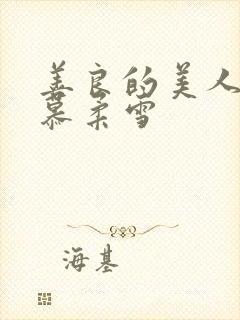 善良的美人
慕柔雪
海基